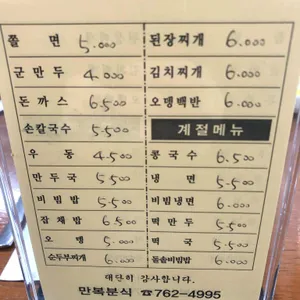 쫄 면 5.000 된장찌개 6.000
군만두 4.000 김치찌개 6.000
돈까스 6.500 오뎅백반 6.000
손칼국수 5.500 계절메뉴
우 동 4.500 콩국수 6.500
만두국 5.500 냉 면 5.500
비빔밥 5.500 비빔냉면 6.000
잡채밥 6.500 떡만두 5.500
오 뎅 5.000 떡 국 5.500
순두부찌개 6.000 돌솥비빔밥 6.000
대단히 감사합니다.
만복분식 ☎762-4995